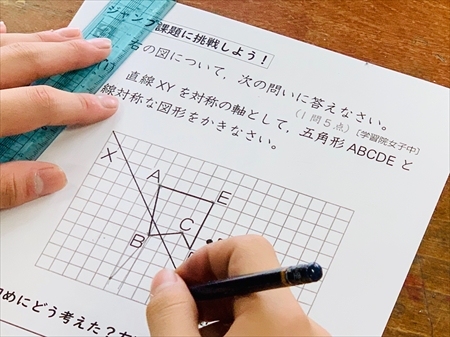 ジャンプ課題に挑戦しよう！
右の図について，次の問いに答えなさい。
（1問5点）〔学習院女子中〕
直線XYを対称の軸として，五角形ABCDEと
線対称な図形をかきなさい。
X
A
E
B
C
めにどう考えた？